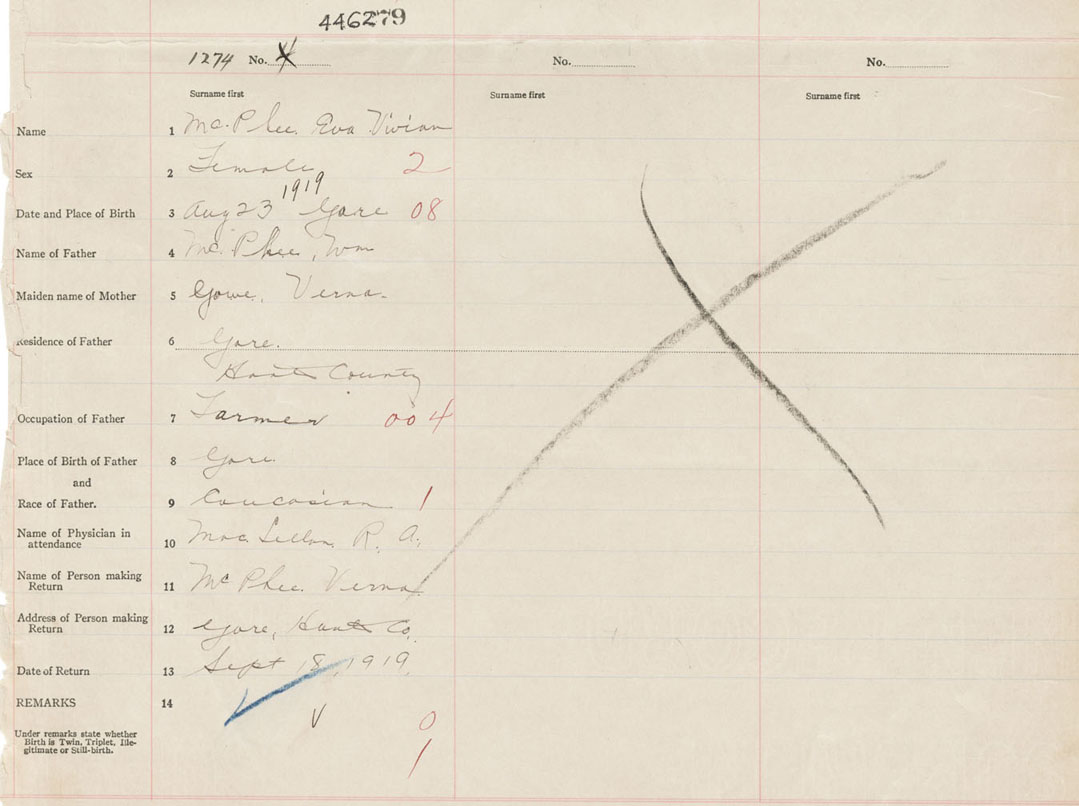 446279
1274 No. 4 No. No.
Surname first Surname first Surname first
Name 1 Mc.Phee. Eva Vivian
Sex 2 Female 2
1919
Date and Place of Birth 3 Aug 23 Gore 08
Name of Father 4 Mc.Phee, Wm
Maiden name of Mother 5 Gowe, Verna.
Residence of Father 6 Gore.
Hants County
Occupation of Father 7 Farmer 004
Place of Birth of Father 8 Gore.
and
Race of Father. 9 Caucasian 1
Name of Physician in
attendance 10 Mac. Lellan, R. A.
Name of Person making
Return 11 Mc Phee. Verna
Address of Person making
Return 12 Gore, Hants Co.
Date of Return 13 Sept 18, 1919.
REMARKS 14
V
0
Under remarks state whether
Birth is Twin, Triplet, Ille-
gitimate or Still-birth.
1